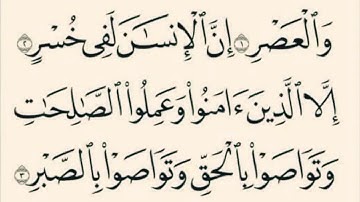 وَٱلۡعَصۡرِ ١ إِنَّ ٱلۡإِنسَٰنَ لَفِي خُسۡرٍ ٢
إِلَّا ٱلَّذِينَ ءَامَنُواْ وَعَمِلُواْ ٱلصَّٰلِحَٰتِ
وَتَوَاصَوۡاْ بِٱلۡحَقِّ وَتَوَاصَوۡاْ بِٱلصَّبۡرِ ٣